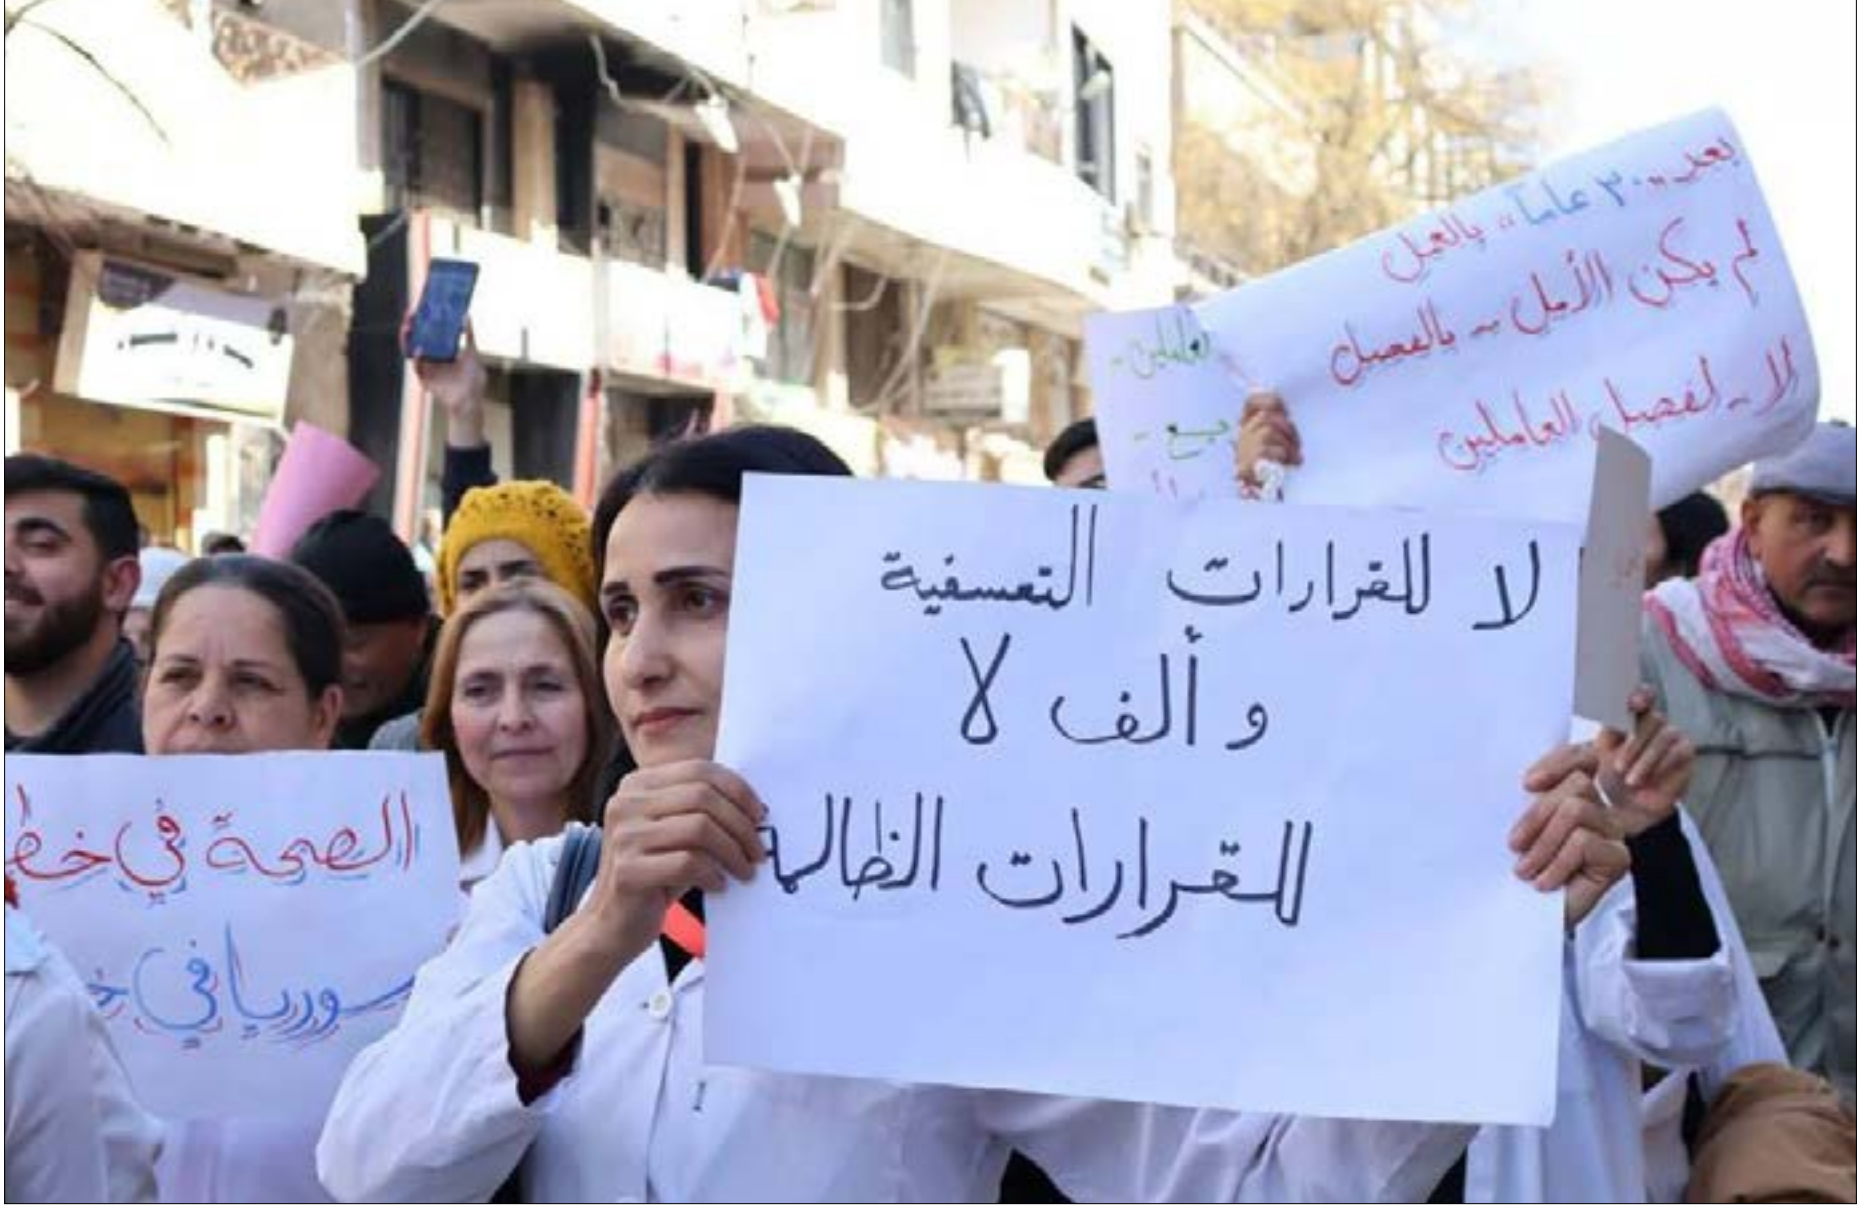 بعد.. ٣٠ عاماً.. بالعمل
لم يكن الأمل -- بالفصل
لا -- لفصل العاملين
لا للقرارات التعسفية
وألف لا
للقرارات الظالمة
الصحة في
سوريا في